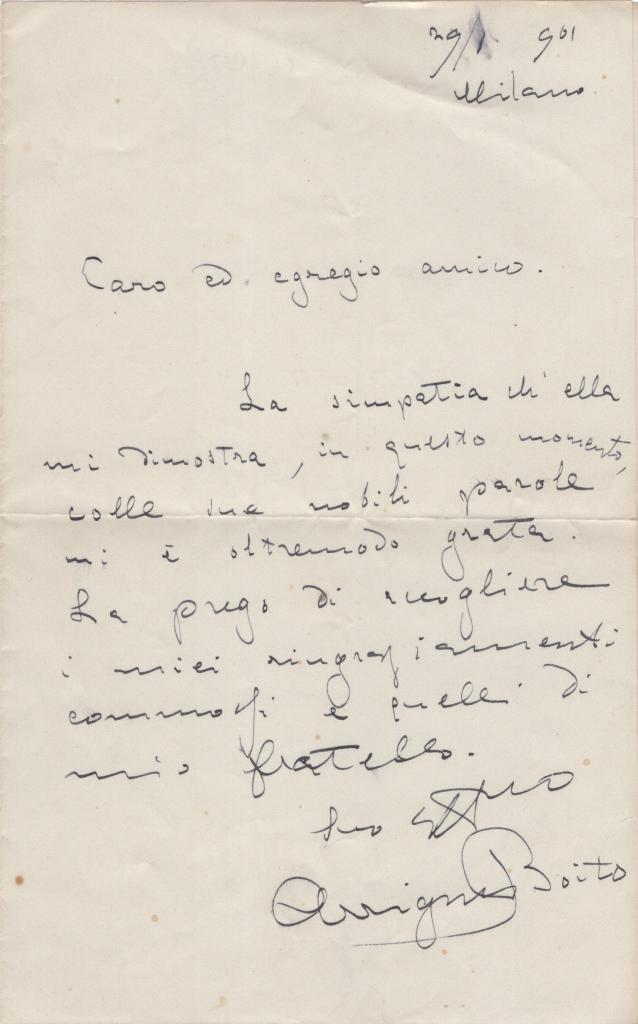 29/1 901
Milano
Caro ed egregio amico.
La simpatia ch'ella
mi dimostra, in questo momento,
colle sue nobili parole
mi è oltremodo grata.
La prego di accogliere
i miei ringraziamenti
commossi e quelli di
mio fratello.
Suo
Arrigo Boito